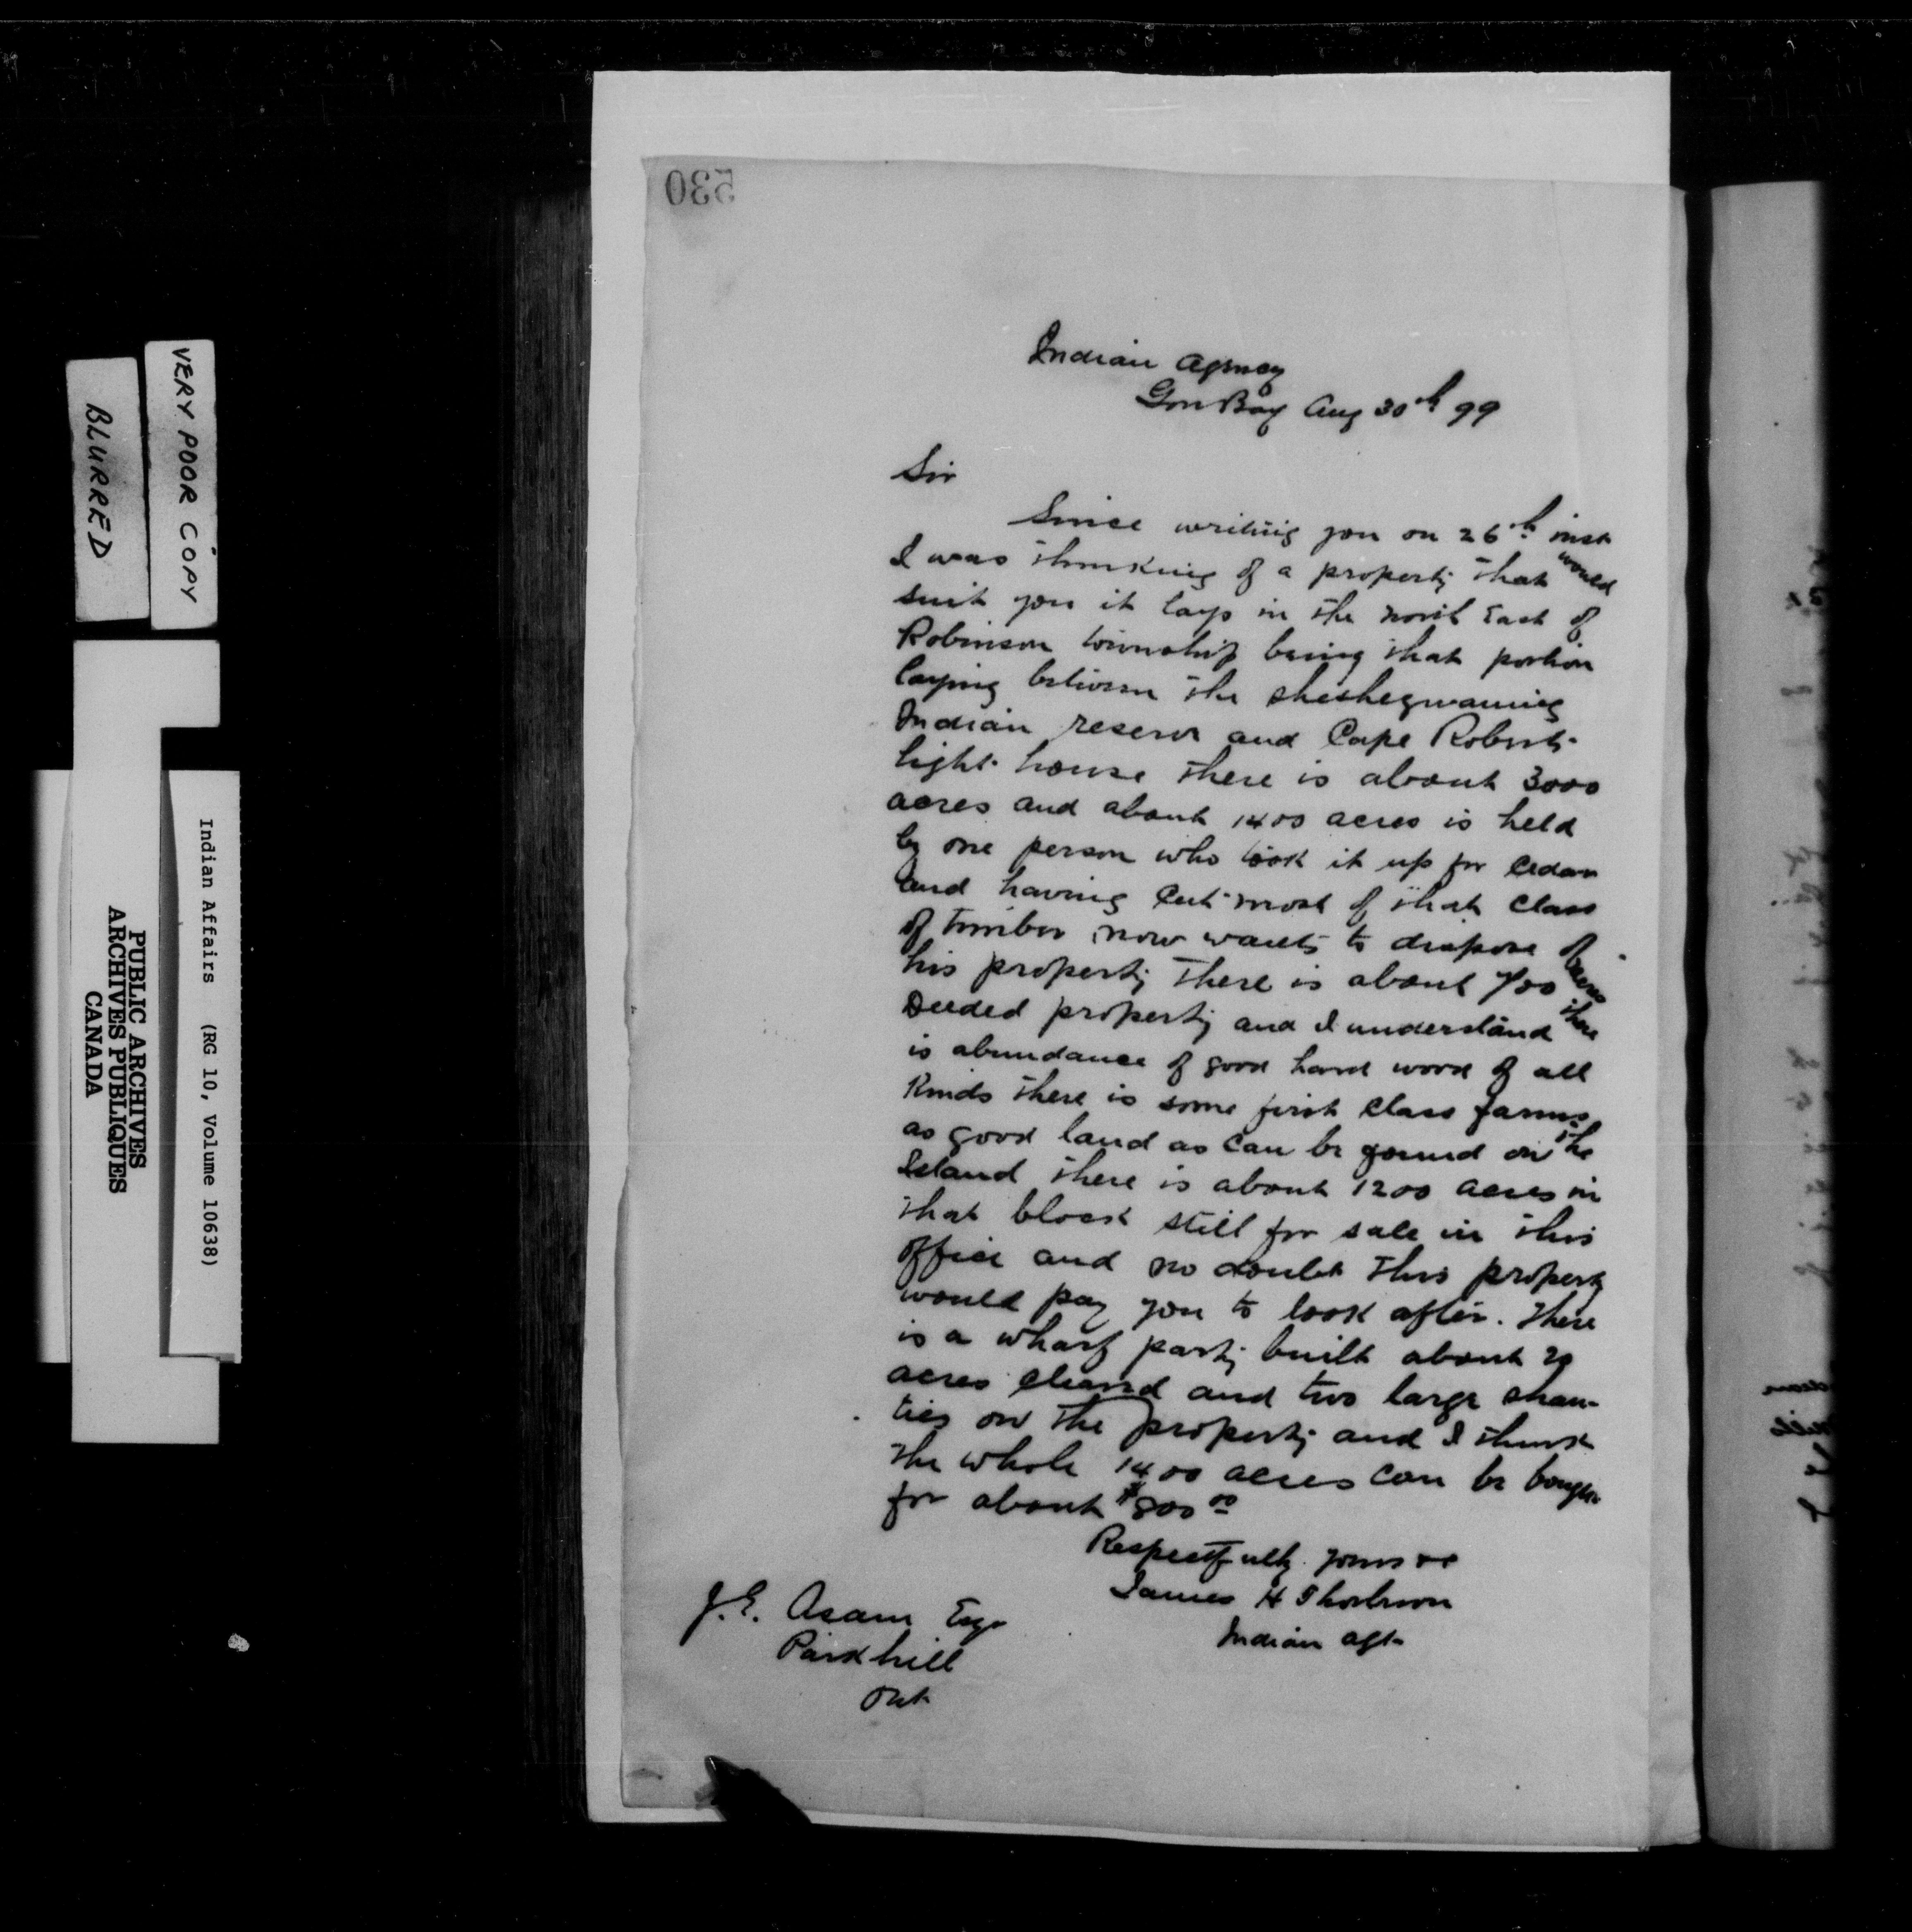 530
Indian Agency
Gore Bay Aug 30th 99
Sir
Since writing you on 26th inst
I was thinking of a property that would
suit you it lays in the north East of
Robinson township being that portion
laying between the sheshegwaning
Indian reserve and Cape Roberts
light house there is about 3000
acres and about 1400 acres is held
by one person who took it up for Cedar
and having Cut most of that Class
of timber now wants to dispose of
his property There is about 700 acres
Deeded property and I understand there
is abundance of good hard wood of all
Kinds there is some first Class farms
as good land as can be found on the
Island there is about 1200 acres in
that block still for sale in this
office and no doubt this property
would pay you to look after. There
is a wharf partly built about 20
acres cleared and two large shan-
ties on the property and I think
the whole 1400 acres can be bought
for about $800.00
Respectfully yours
James H Thorburn
Indian agt
J. E. Esqr
Parkhill
Ont
VERY POOR COPY
BLURRED
Indian Affairs (RG 10, Volume 10638)
PUBLIC ARCHIVES
ARCHIVES PUBLIQUES
CANADA